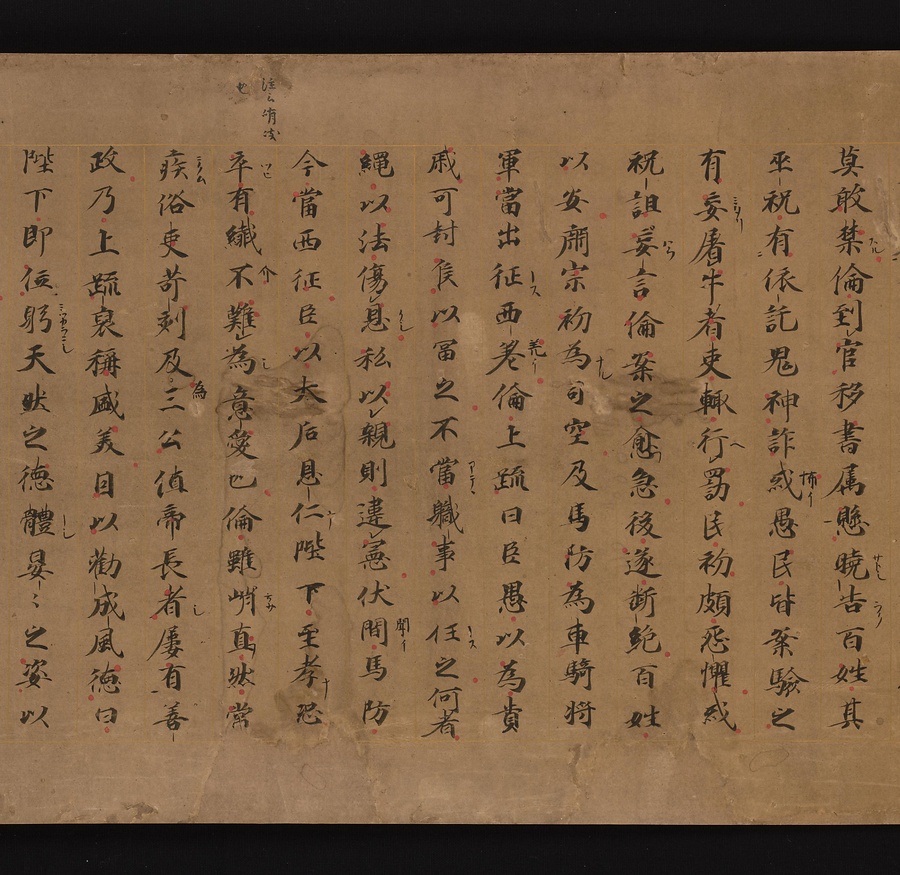 莫敢禁倫到官移書属懸曉告百姓其
巫祝有依託鬼神詐或愚民皆案驗之
有妄屠牛者吏輙行罰民初頗恐懼或
祝詛妄言倫案之愈急後遂断絶百姓
以安肅宗初為司空及馬防為車騎将
軍當出征西羌倫上疏曰臣愚以為貴
戚可封侯以冨之不當職事以任之何者
繩以法傷恩私以親則違憲伏聞馬防
今當西征臣以太后恩仁陛下至孝恐
卒有纎不難為意愛也倫雖峭直然常
疾俗吏苛刻及三公值帝長者屡有善
政乃上疏襃稱盛美因以勸成風德曰
陛下即位躬天然之德體晏〻之姿以